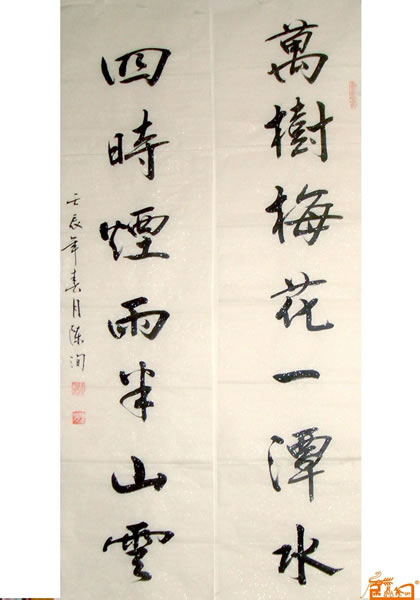 萬樹梅花一潭水
四時煙雨半山雲
壬辰年春月陈润